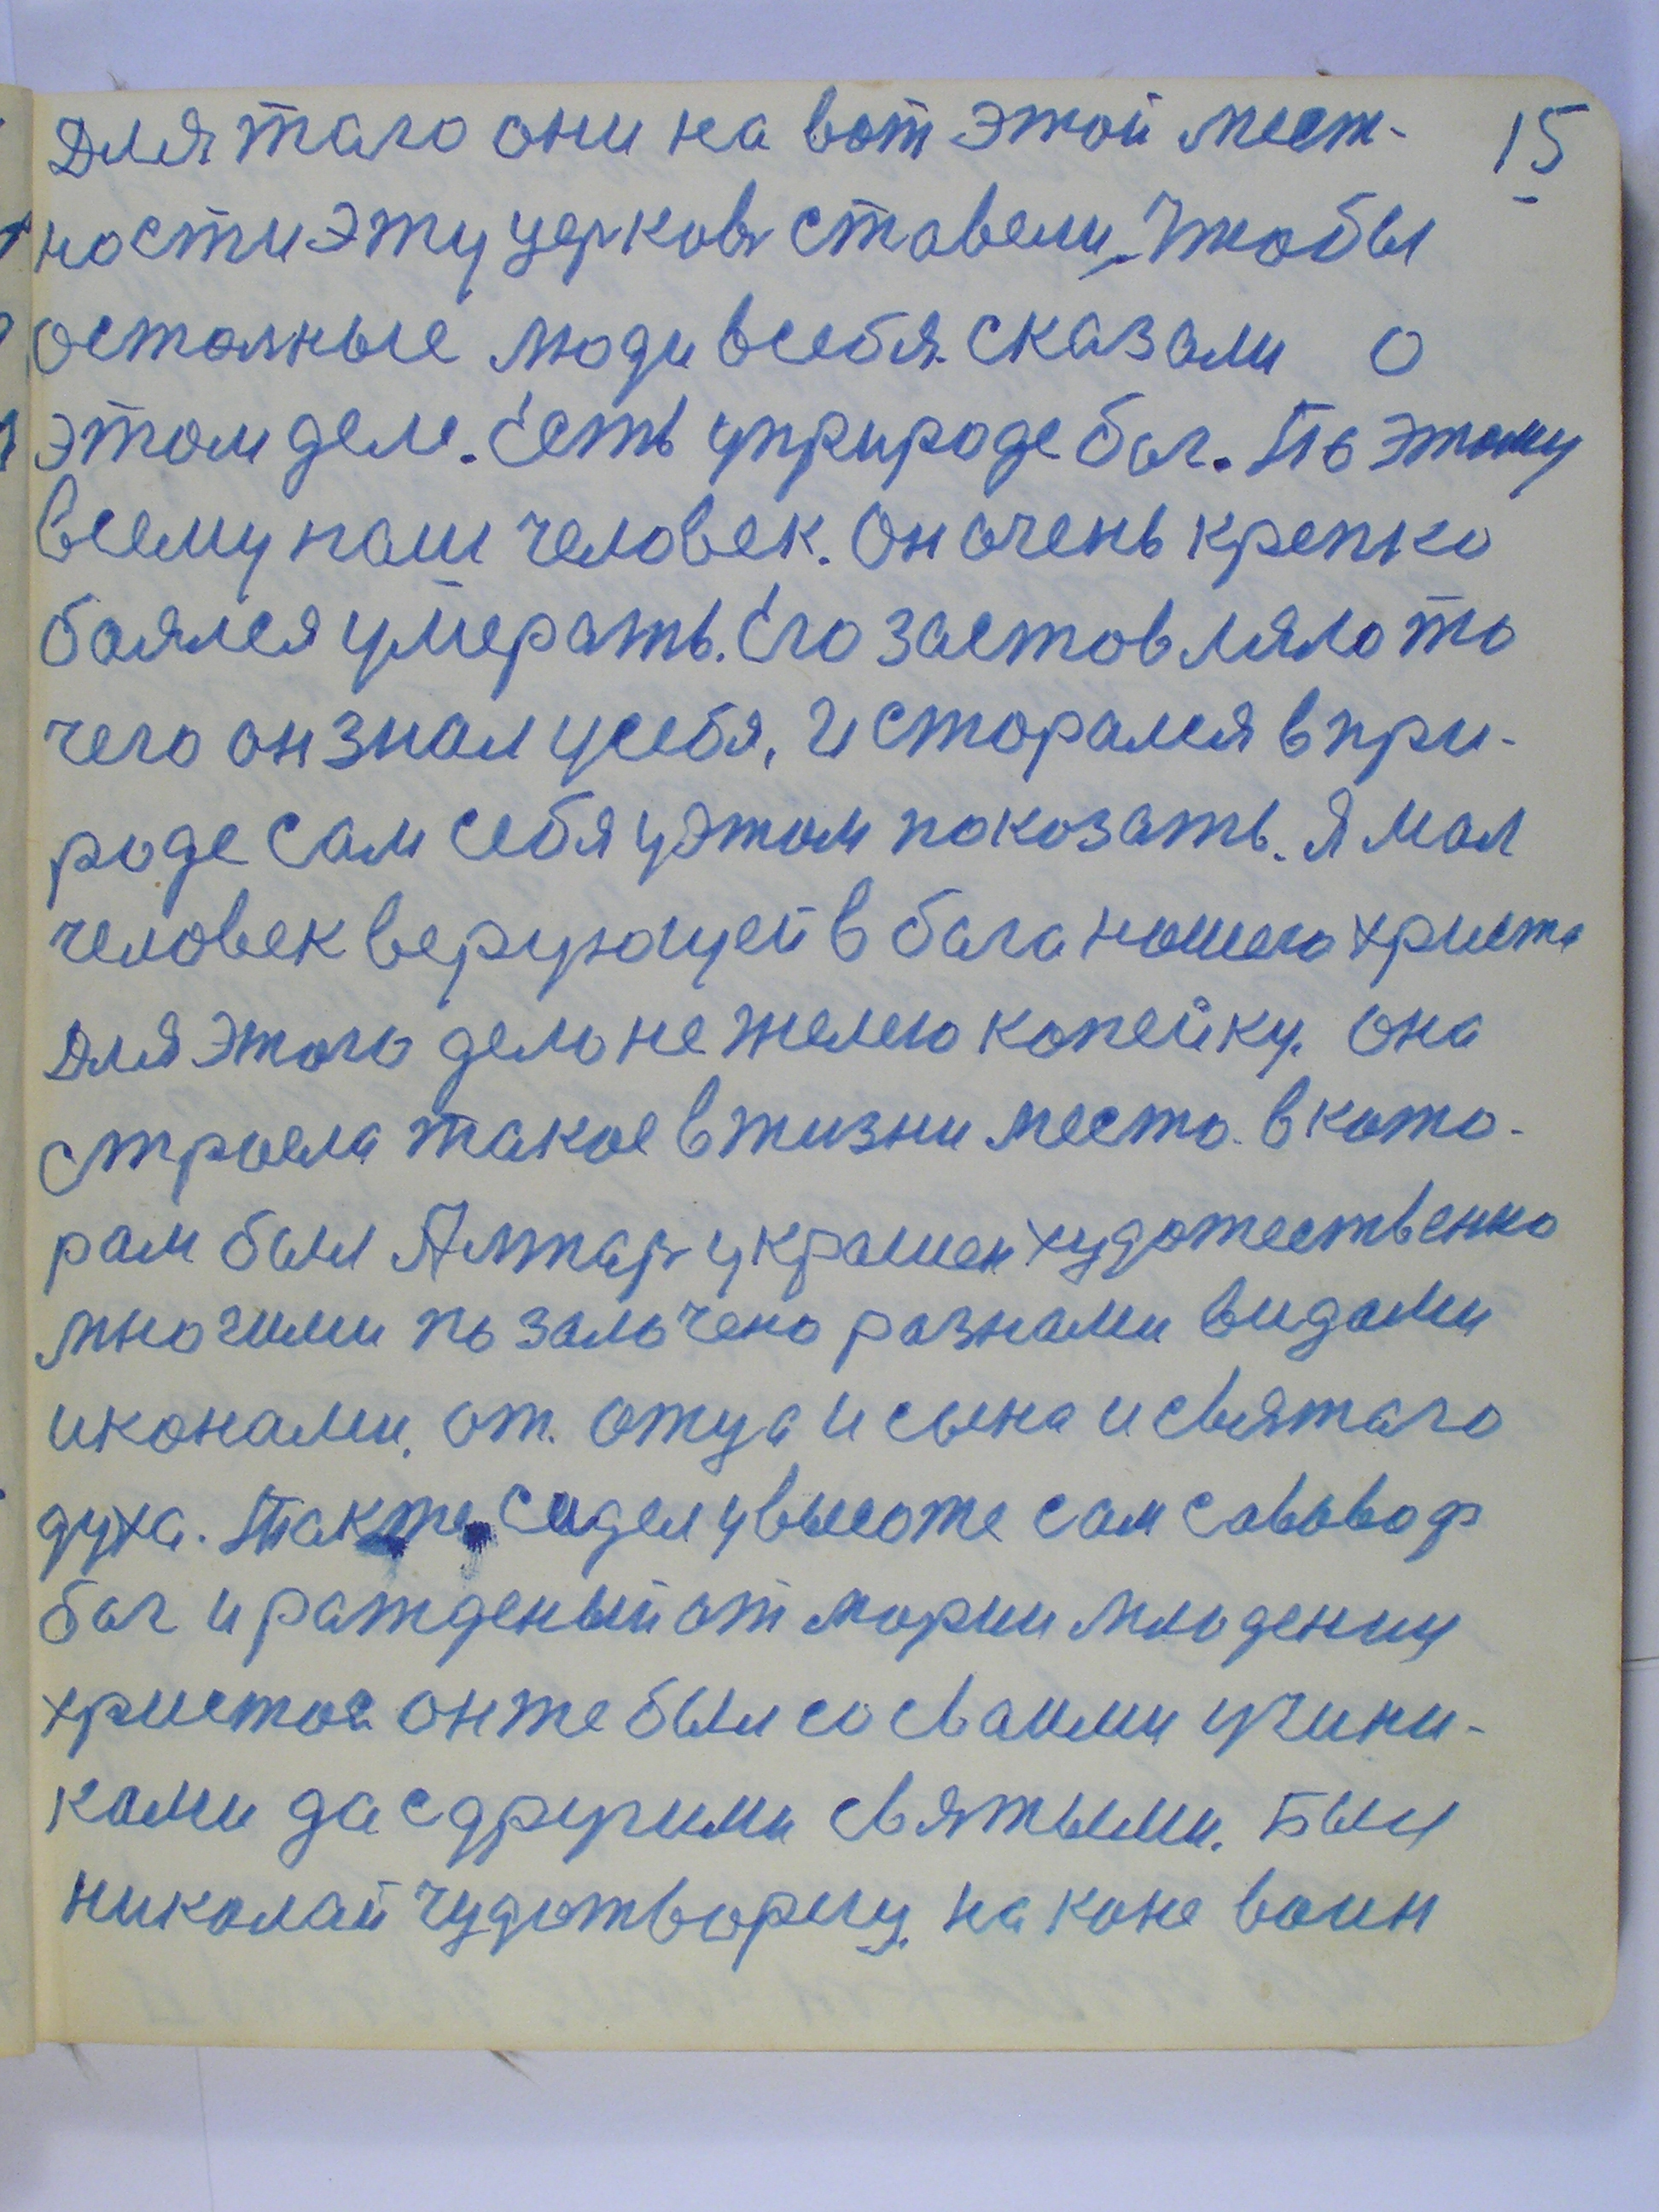 15
Для таго они на вот этой мест-
ности эту церковь ставели, Чтобы
осталные люди в себя сказали о
этом деле. Есть у природе бог. По этому
всему наш человек. Он очень крепко
боялся умерать. Его застовляло то
чего он знал у себя, И старался в при-
роде сам себя у этом показать. Я мол
человек верующей в бага нашего христа
Для этого дело не желею копейку. она
строела такое в жизни место. в кото-
рам был Алтарь украшен художественно
многими позалочено разнами видами
иконами. от. отца и сына и святаго
духа. Также сидел у высоте сам сававаоф
бог и ражденый от марии младениц
христос он же был со сваими учини-
ками да с другими святыми. Был
николай чудотворец. на коне воин